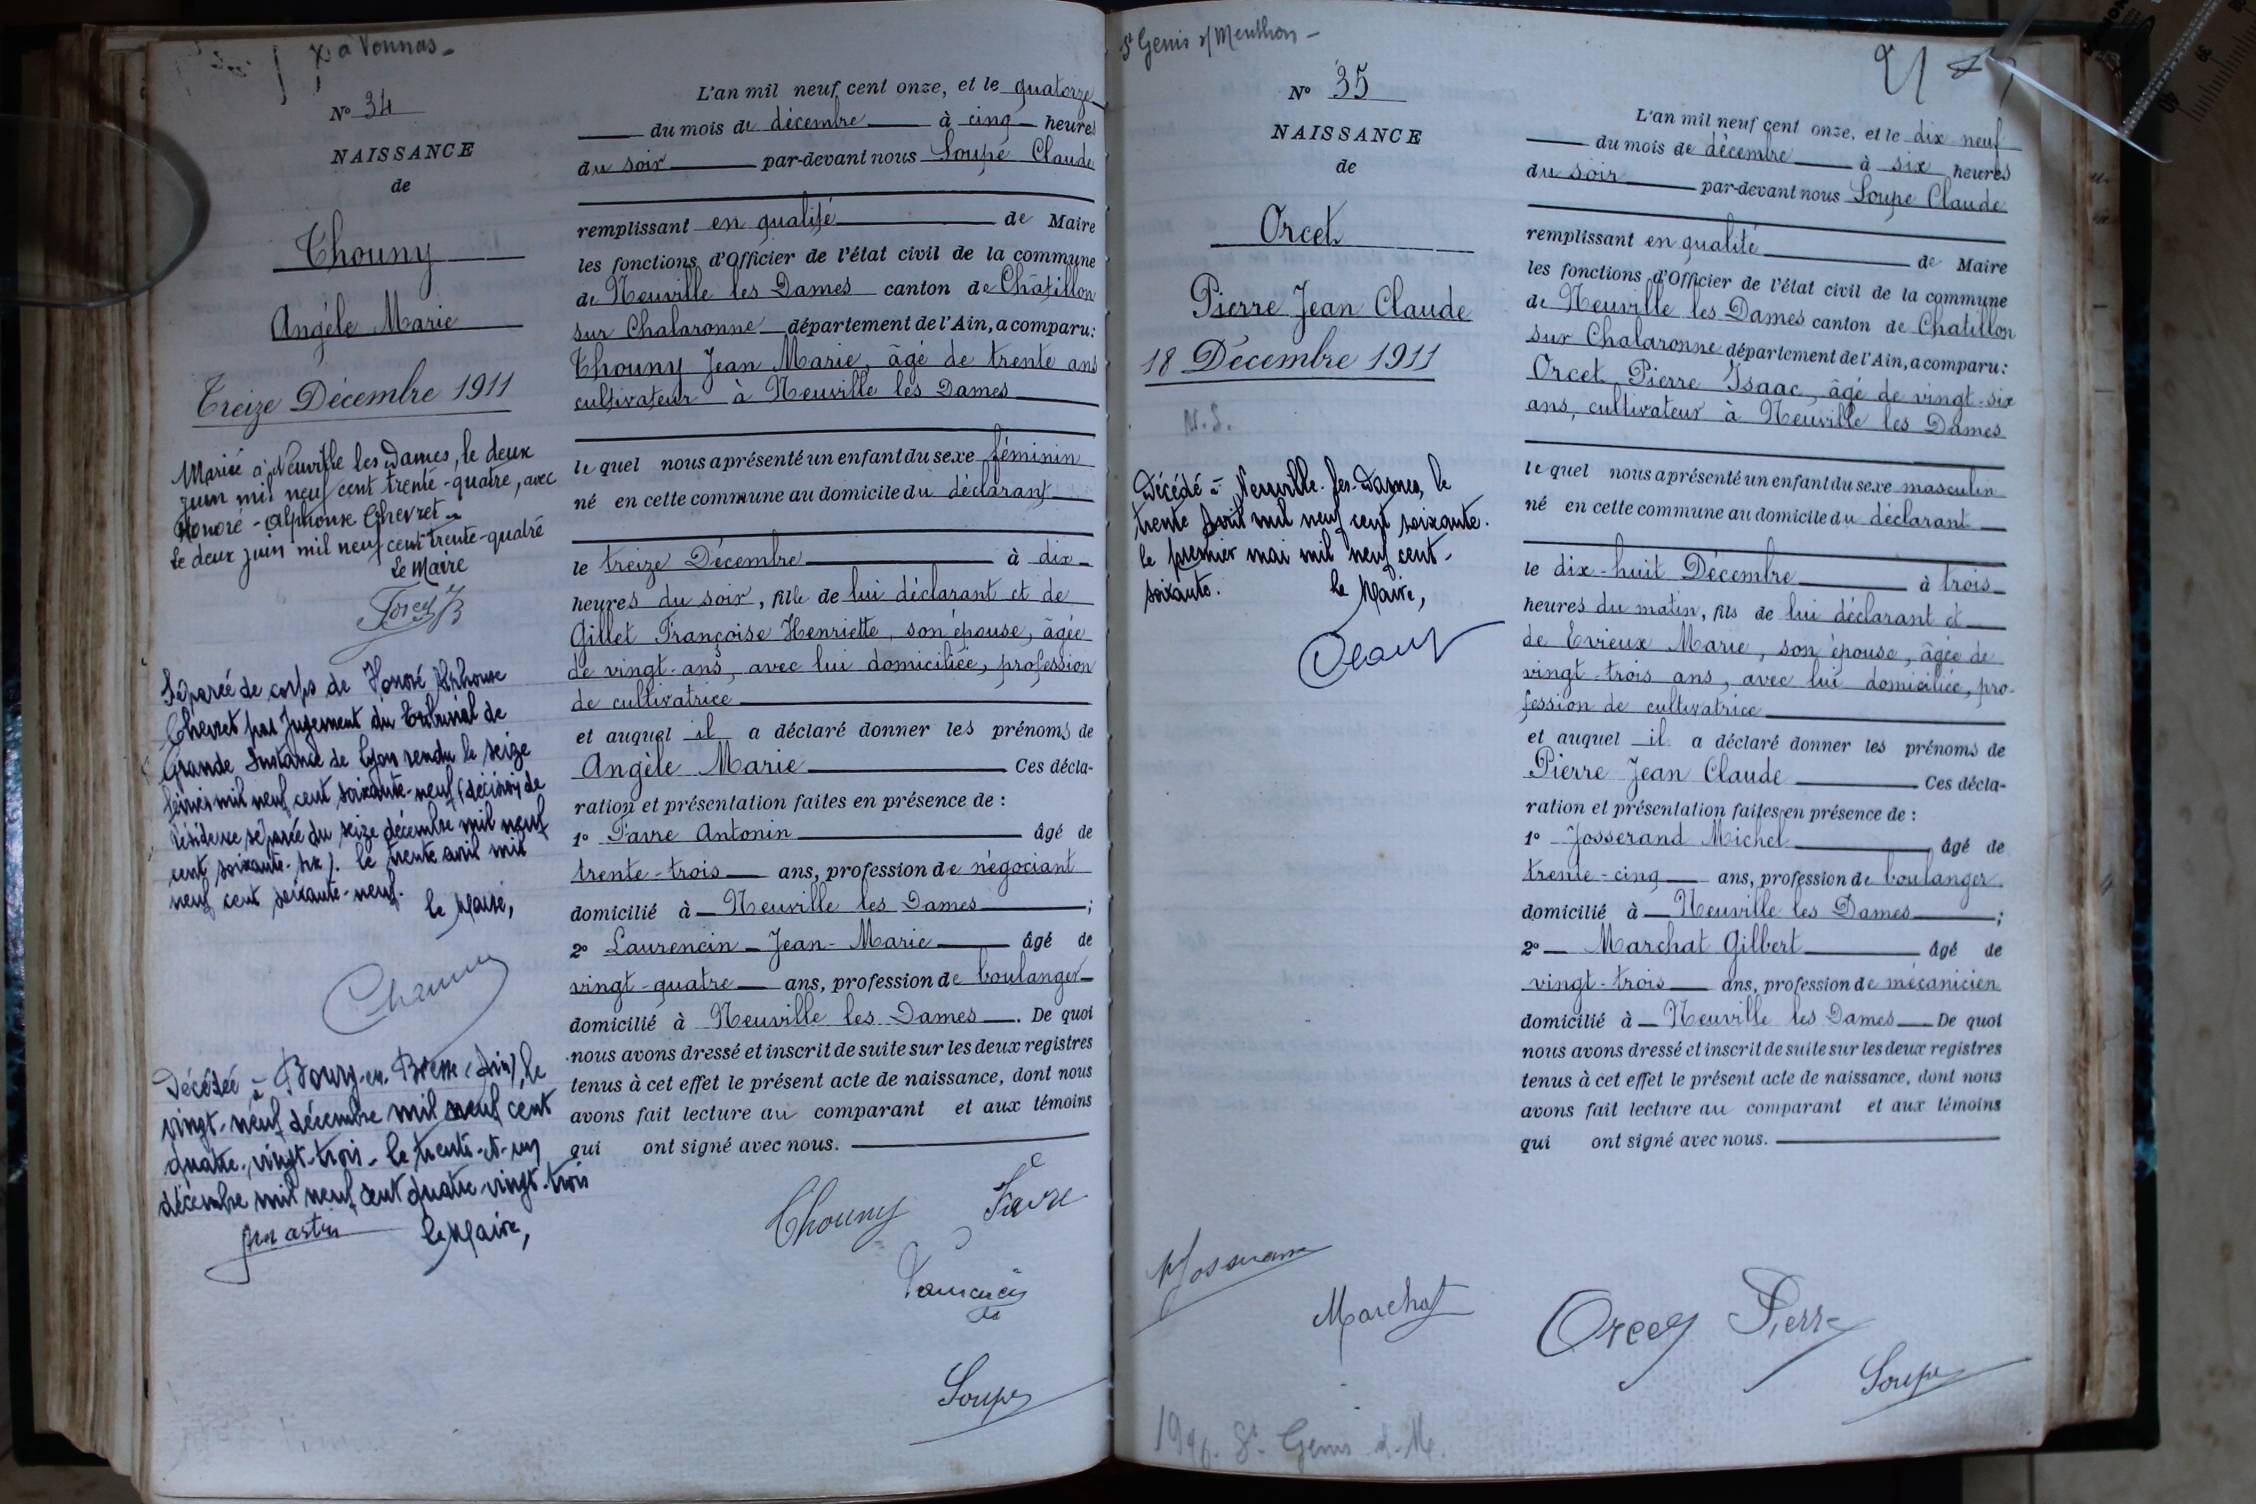 à Vonnas
N° 34
NAISSANCE
de
Thouny
Angèle Marie
Treize Décembre 1911
Mariée à Neuville les Dames, le deux
juin mil neuf cent trente-quatre, avec
Honoré-Alphonse Chevret
Le deux juin mil neuf cent trente-quatre
Le Maire
Séparée de corps de Honoré Alphonse
Chevret par Jugement du Tribunal de
Grande Instance de Lyon rendu le seize
février mil neuf cent soixante-neuf (décision de
résidence séparée du seize décembre mil neuf
cent soixante-six). le trente avril mil
neuf cent soixante-neuf.
le Maire,
Décédée à Bourg-en-Bresse (Ain), le
vingt-neuf décembre mil neuf cent
quatre-vingt-trois - le trente-et-un
décembre mil neuf cent quatre-vingt-trois
le Maire,
L'an mil neuf cent onze, et le quatorze
du mois de décembre à cinq heures
du soir par-devant nous Soupe Claude
remplissant en qualité de Maire
les fonctions d'Officier de l'état civil de la commune
de Neuville les Dames canton de Châtillon
sur Chalaronne département de l'Ain, a comparu:
Thouny Jean Marie, âgé de trente ans
cultivateur à Neuville les Dames
le quel nous a présenté un enfant du sexe féminin
né en cette commune au domicile du déclarant
le treize Décembre à dix
heures du soir, fille de lui déclarant et de
Gillet Françoise Henriette, son épouse, âgée
de vingt-ans, avec lui domiciliée, profession
de cultivatrice
et auquel il a déclaré donner les prénoms de
Angèle Marie Ces décla-
ration et présentation faites en présence de :
1° Favre Antonin âgé de
trente-trois ans, profession de négociant
domicilié à Neuville les Dames ;
2° Laurencin Jean-Marie âgé de
vingt-quatre ans, profession de boulanger
domicilié à Neuville les Dames. De quoi
nous avons dressé et inscrit de suite sur les deux registres
tenus à cet effet le présent acte de naissance, dont nous
avons fait lecture au comparant et aux témoins
qui ont signé avec nous.
Thouny Favre
Soupe
St Genis s/ Menthon
N° 35
NAISSANCE
de
Orcet
Pierre Jean Claude
18 Décembre 1911
N.S.
Décédé à Neuville-les-Dames, le
trente avril mil neuf cent soixante.
le premier mai mil neuf cent-
soixante. le Maire,
L'an mil neuf cent onze, et le dix neuf
du mois de décembre à six heures
du soir par-devant nous Soupe Claude
remplissant en qualité de Maire
les fonctions d'Officier de l'état civil de la commune
de Neuville les Dames canton de Chatillon
sur Chalaronne département de l'Ain, a comparu:
Orcet Pierre Isaac, âgé de vingt-six
ans, cultivateur à Neuville les Dames
le quel nous a présenté un enfant du sexe masculin
né en cette commune au domicile du déclarant
le dix-huit Décembre à trois
heures du matin, fils de lui déclarant et
de Evieux Marie, son épouse, âgée de
vingt-trois ans, avec lui domiciliée, pro-
fession de cultivatrice
et auquel il a déclaré donner les prénoms de
Pierre Jean Claude Ces décla-
ration et présentation faites en présence de :
1° Josserand Michel âgé de
trente-cinq ans, profession de boulanger
domicilié à Neuville les Dames ;
2° Marchat Gilbert âgé de
vingt-trois ans, profession de mécanicien
domicilié à Neuville les Dames De quoi
nous avons dressé et inscrit de suite sur les deux registres
tenus à cet effet le présent acte de naissance, dont nous
avons fait lecture au comparant et aux témoins
qui ont signé avec nous.
Marchat
Orcet Pierre
Soupe
St Genis s.-M.